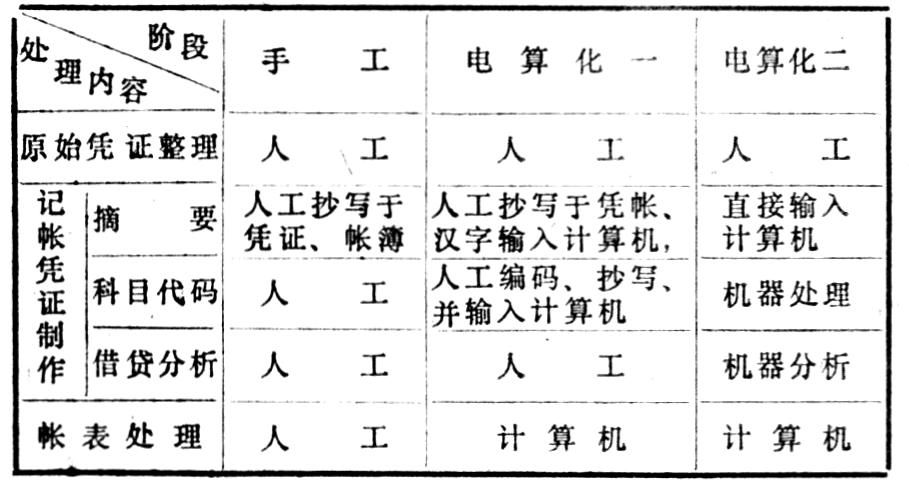 阶段
处理内容
手工
电算化一
电算化二
原始凭证整理
人工
人工
人工
记帐凭证制作
摘要
人工抄写于
凭证、帐薄
人工抄写于凭帐、
汉字输入计算机,
直接输入
计算机
科目代码
人工
人工编码、抄写、
并输入计算机
机器处理
借贷分析
人工
人工
机器分析
帐表处理
人工
计算机
计算机